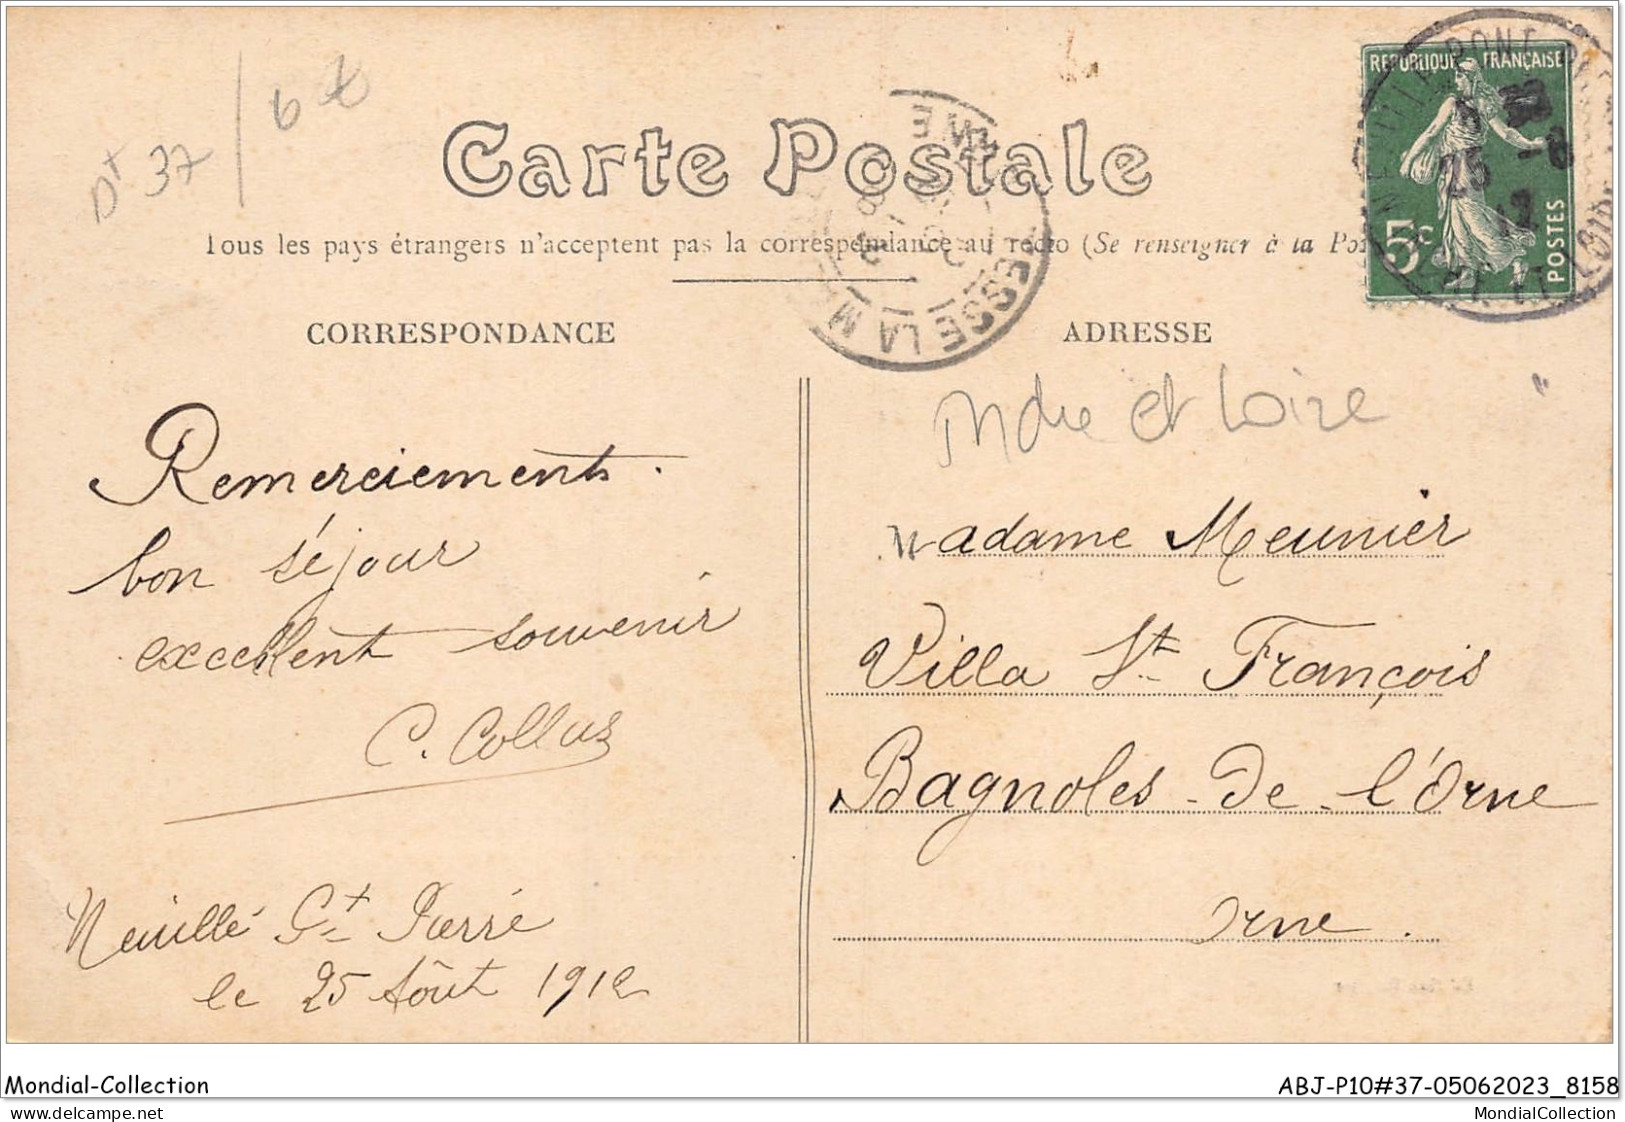 Dt 37
6 t
Carte Postale
Tous les pays étrangers n'acceptent pas la correspondance au recto (Se renseigner à la Po
RÉPUBLIQUE FRANÇAISE
5c
POSTES
25 -8
12
ESSE LA M
CORRESPONDANCE
ADRESSE
Indre et Loire
Remerciements.
bon séjour
excellent souvenir
C. Collus
Neuillé Pt Pierre
le 25 Août 1912
Madame Meunier
Villa St François
Bagnoles-De-l'Orne
Orne.
Mondial-Collection
ABJ-P10#37-05062023_8158
delcampe.net
MondialCollection